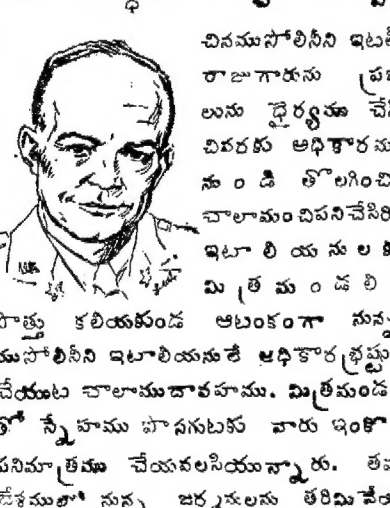 చినముసోలినీని ఇటలీ
రాజుగారును ప్రజ
లును ధైర్యము చేసి
చివరకు అధికారము
నుండి తొలగించి
చాలామంచిపనిచేసిరి
ఇటాలియనులకి
మిత్రమండలి
పొత్తు కలియకుండ ఆటంకంగా నున్న
ముసోలినీని ఇటాలియనులే అధికారభ్రష్టు
చేయుట చాలాముదావహము. మిత్రమండ
తో స్నేహము పొసగుటకు వారు ఇంకా
పనిమాత్రము చేయవలసియున్నారు. తమ
దేశములో నున్న జర్మనులను తరిమివేయ